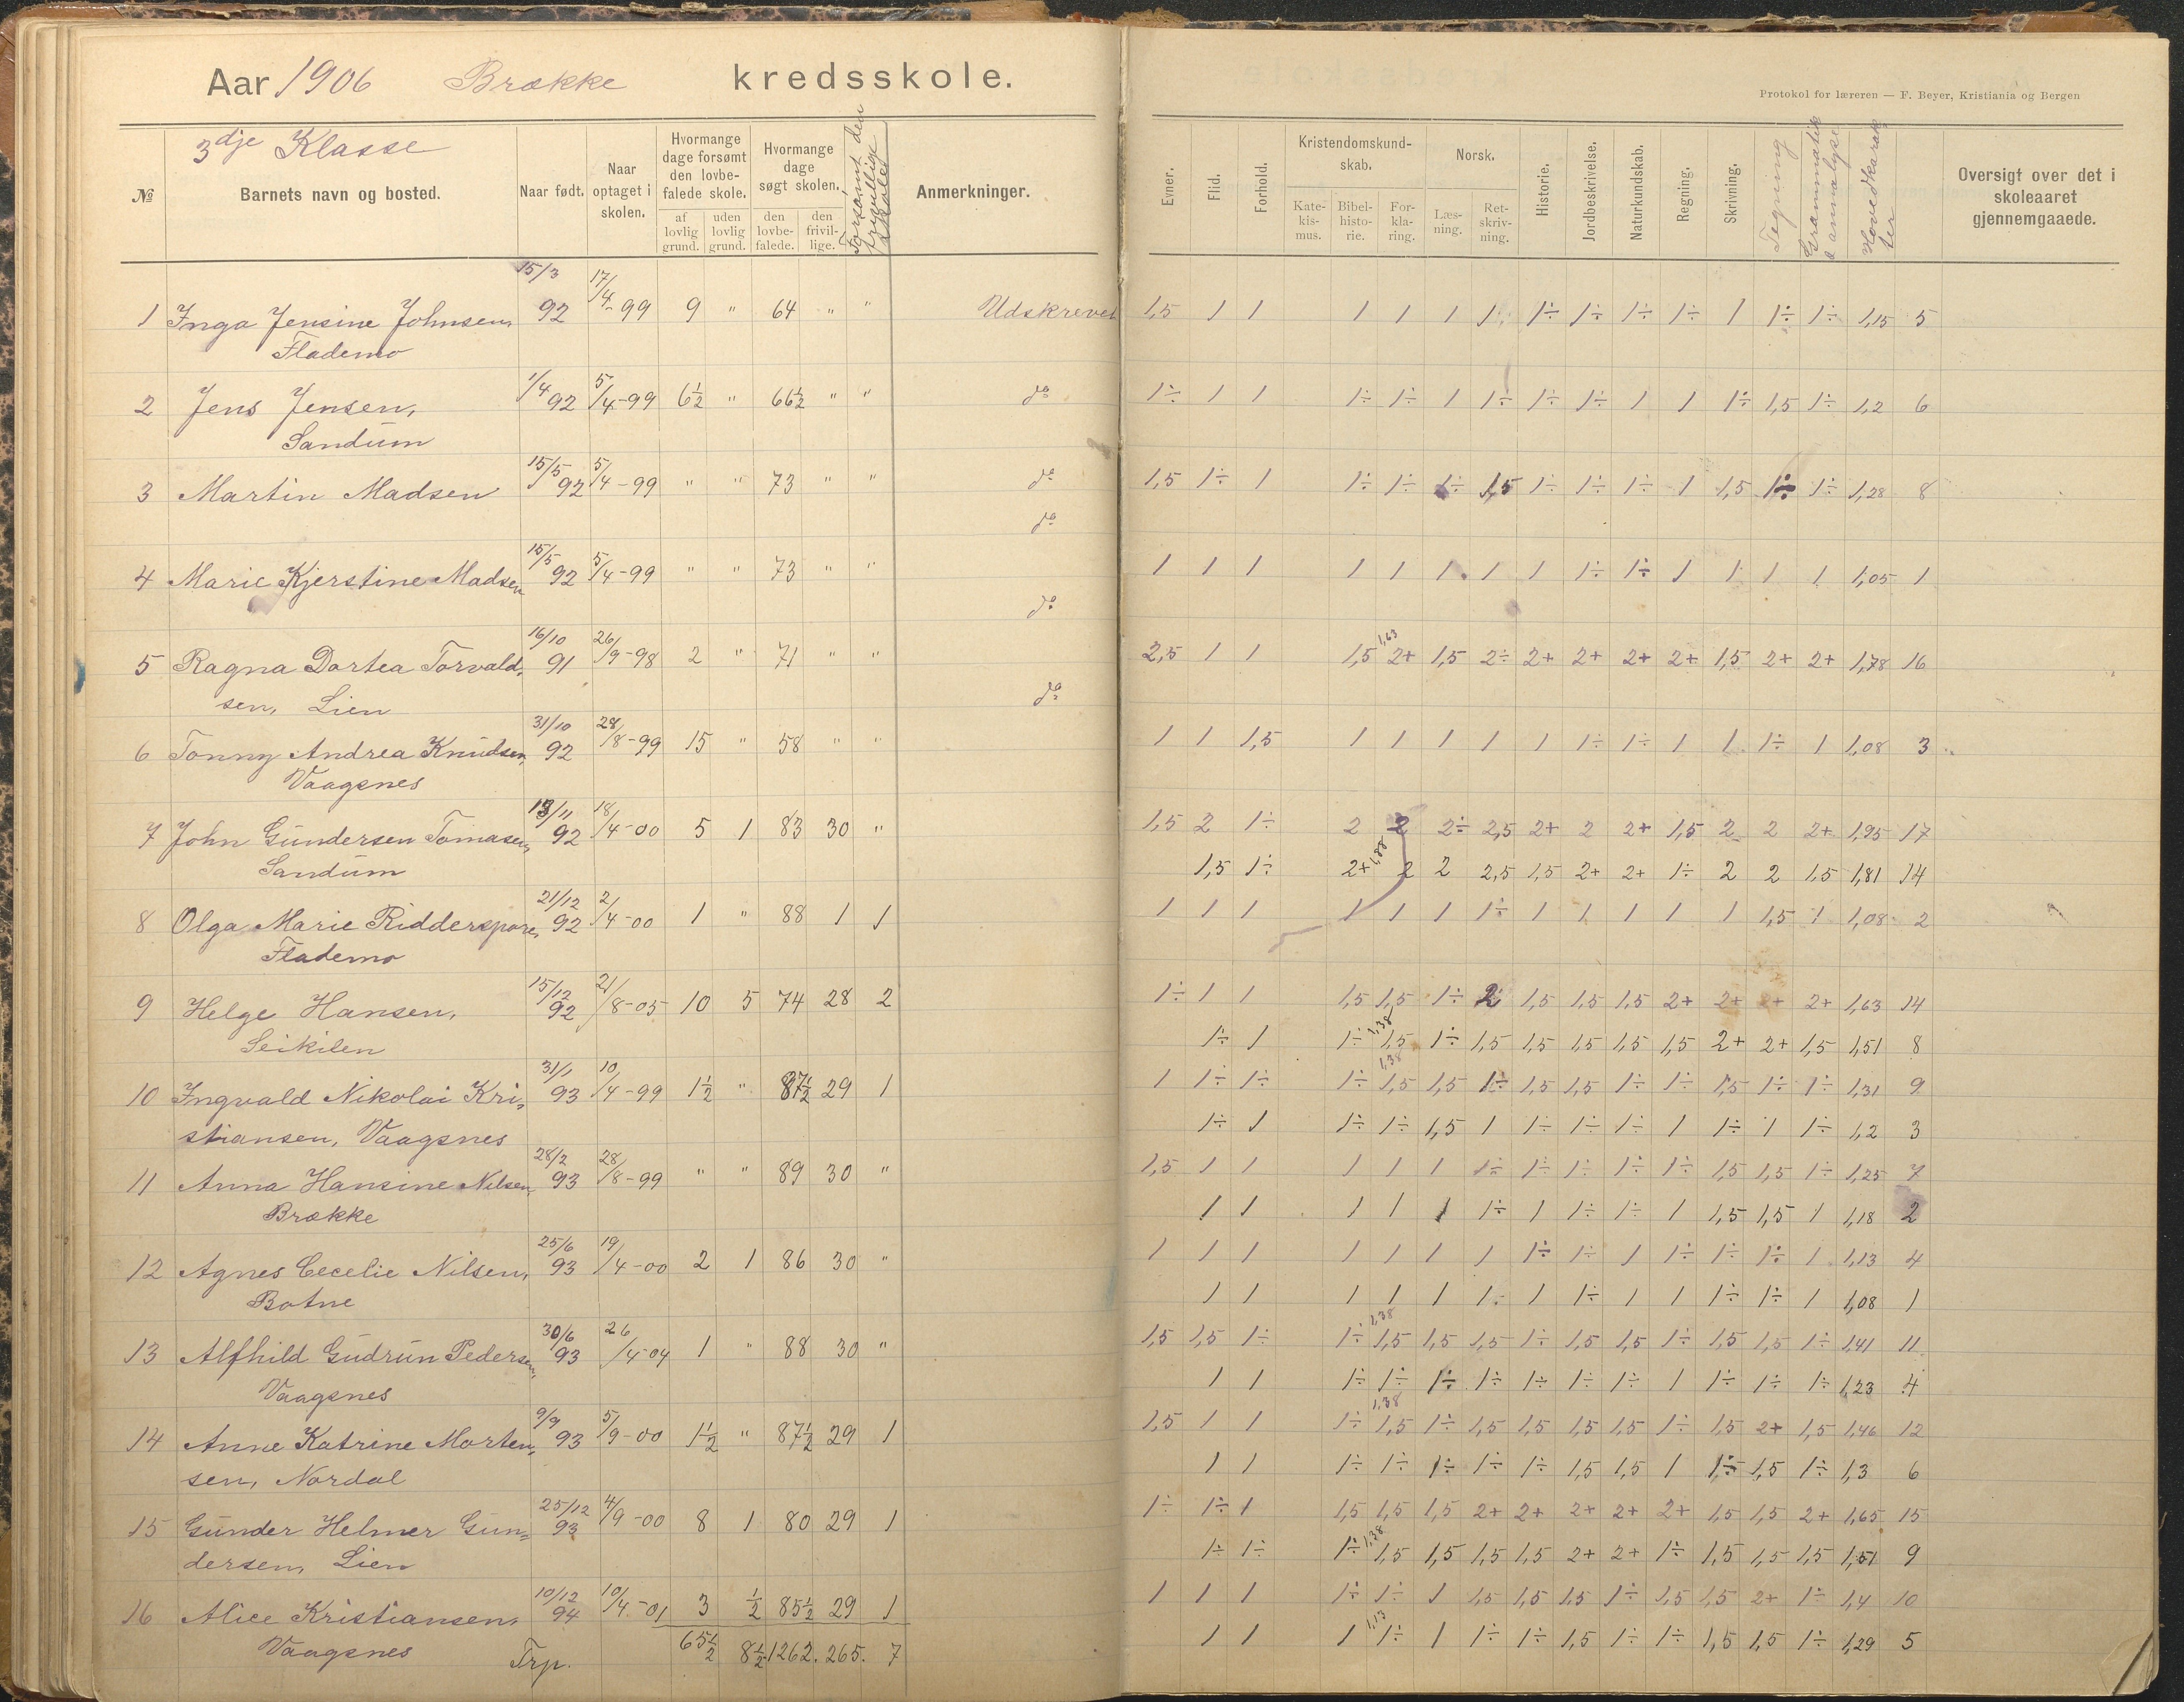 Aar 1906 Brække kredsskole.
Protokol for læreren — F. Beyer, Kristiania og Bergen
3dje Klasse
№ Barnets navn og bosted. Naar født. Naar optaget i skolen. Hvormange dage forsømt den lovbefalede skole. af lovlig grund. uden lovlig grund. Hvormange dage søgt skolen. den lovbefalede. den frivillige. Forsømt den frivillige skole Anmerkninger.
Evner. Flid. Forhold. Kristendomskundskab. Katekismus. Bibelhistorie. Forklaring. Norsk. Læsning. Retskrivning. Historie. Jordbeskrivelse. Naturkundskab. Regning. Skrivning. Tegning Grammatik & annalyse Hovedkarakter Oversigt over det i skoleaaret gjennemgaaede.
1 Inga Jensine Johnsen, 15/3 92 17/4-99 9 " 64 " " Udskrevet 1,5 1 1 1 1 1 1 1÷ 1÷ 1÷ 1÷ 1 1÷ 1÷ 1,15 5
Flademo
2 Jens Jensen, 1/4 92 5/4-99 6½ " 66½ " " do 1÷ 1 1 1÷ 1÷ 1 1÷ 1÷ 1÷ 1 1 1÷ 1,5 1÷ 1,2 6
Sandum
3 Martin Madsen 15/5 92 5/4-99 " " 73 " " do 1,5 1÷ 1 1÷ 1÷ 1÷ 1,5 1÷ 1÷ 1÷ 1 1,5 1÷ 1÷ 1,28 8
do
4 Marie Kjerstine Madsen 15/5 92 5/4-99 " " 73 " " 1 1 1 1 1 1 1 1 1÷ 1÷ 1 1 1 1 1,05 1
do
5 Ragna Dortea Torvald- 16/10 91 26/9-98 2 " 71 " " 2,5 1 1 1,5 1,63 2+ 1,5 2÷ 2+ 2+ 2+ 2+ 1,5 2+ 2+ 1,78 16
sen, Lien do
6 Tonny Andrea Knudsen, 31/10 92 28/8-99 15 " 58 " " 1 1 1,5 1 1 1 1 1 1÷ 1÷ 1 1 1÷ 1 1,08 3
Vaagsnes
7 John Gundersen Tomasen, 13/11 92 18/4-00 5 1 83 30 " 1,5 2 1÷ 2 2 2÷ 2,5 2+ 2 2+ 1,5 2 2 2+ 1,95 17
Sandum 1,5 1÷ 2+ 1,88 2 2 2,5 1,5 2+ 2+ 1÷ 2 2 1,5 1,81 14
8 Olga Marie Ridderspore, 21/12 92 2/4-00 1 " 88 1 1 1 1 1 1 1 1 1÷ 1 1 1 1 1 1,5 1 1,08 2
Flademo
9 Helge Hansen, 15/12 92 21/8-05 10 5 74 28 2 1÷ 1 1 1,5 1,5 1÷ 2 1,5 1,5 1,5 2+ 2+ 2+ 2+ 1,63 14
Seikilen 1÷ 1 1÷ 1,38 1,5 1÷ 1,5 1,5 1,5 1,5 1,5 2+ 2+ 1,5 1,51 8
10 Ingvald Nikolai Kri- 31/1 93 10/4-99 1½ " 87½ 29 1 1 1÷ 1÷ 1÷ 1,38 1,5 1,5 1÷ 1,5 1,5 1÷ 1÷ 1,5 1÷ 1÷ 1,31 9
stiansen, Vaagsnes 1÷ 1 1÷ 1÷ 1,5 1 1÷ 1÷ 1÷ 1 1÷ 1 1÷ 1,2 3
11 Anna Hansine Nilsen, 28/2 93 28/8-99 " " 89 30 " 1,5 1 1 1 1 1 1÷ 1÷ 1÷ 1÷ 1÷ 1,5 1,5 1÷ 1,25 7
Brække 1 1 1 1 1 1÷ 1 1÷ 1÷ 1 1,5 1,5 1 1,18 2
12 Agnes Cecelie Nilsen, 25/6 93 19/4-00 2 1 86 30 " 1 1 1 1 1 1 1 1÷ 1÷ 1 1÷ 1÷ 1÷ 1 1,13 4
Botne 1 1 1 1 1 1÷ 1 1÷ 1 1 1÷ 1÷ 1 1,08 1
13 Alfhild Gudrun Pedersen, 30/6 93 26/4-04 1 " 88 30 " 1,5 1,5 1÷ 1÷ 1,38 1,5 1,5 1,5 1÷ 1,5 1,5 1÷ 1,5 1,5 1÷ 1,41 11
Vaagsnes 1 1 1÷ 1÷ 1÷ 1÷ 1÷ 1÷ 1÷ 1 1÷ 1÷ 1÷ 1,23 4
14 Anne Katrine Morten- 9/9 93 5/9-00 1½ " 87½ 29 1 1,5 1 1 1÷ 1,38 1,5 1÷ 1,5 1,5 1,5 1,5 1÷ 1,5 2+ 1,5 1,46 12
sen, Nordal 1 1 1÷ 1÷ 1÷ 1÷ 1÷ 1,5 1,5 1 1,5 1,5 1÷ 1,3 6
15 Gunder Helmer Gun- 25/12 93 4/9-00 8 1 80 29 1 1÷ 1÷ 1 1,5 1,5 1,5 2+ 2+ 2+ 2+ 2+ 1,5 1,5 2+ 1,65 15
dersen, Lien 1÷ 1÷ 1÷ 1,38 1,5 1,5 1,5 1,5 2+ 2+ 1÷ 1,5 1,5 1,5 1,51 9
16 Alice Kristiansen, 10/12 94 10/4-01 3 ½ 85½ 29 1 1 1 1 1÷ 1÷ 1 1,5 1,5 1,5 1÷ 1,5 1,5 2+ 1÷ 1,4 10
Vaagsnes Trp. 65½ 8½ 1262. 265. 7 1 1 1 1,13 1÷ 1 1÷ 1÷ 1,5 1÷ 1÷ 1,5 1,5 1÷ 1,29 5